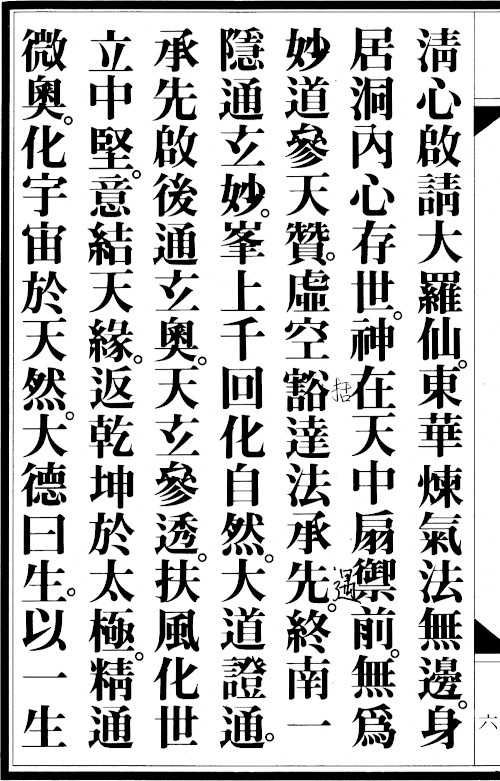 淸心啟請大羅仙。東華煉氣法無邊。身
居洞內心存世。神在天中扇禦前。無爲
妙道參天贊。虛空豁達法承先。終南一
隱通玄妙。峯上千回化自然。大道證通。
承先啟後通玄奧。天玄參透。扶風化世
立中堅。意結天緣。返乾坤於太極。精通
微奧。化宇宙於天然。大德曰生。以一生
括
六